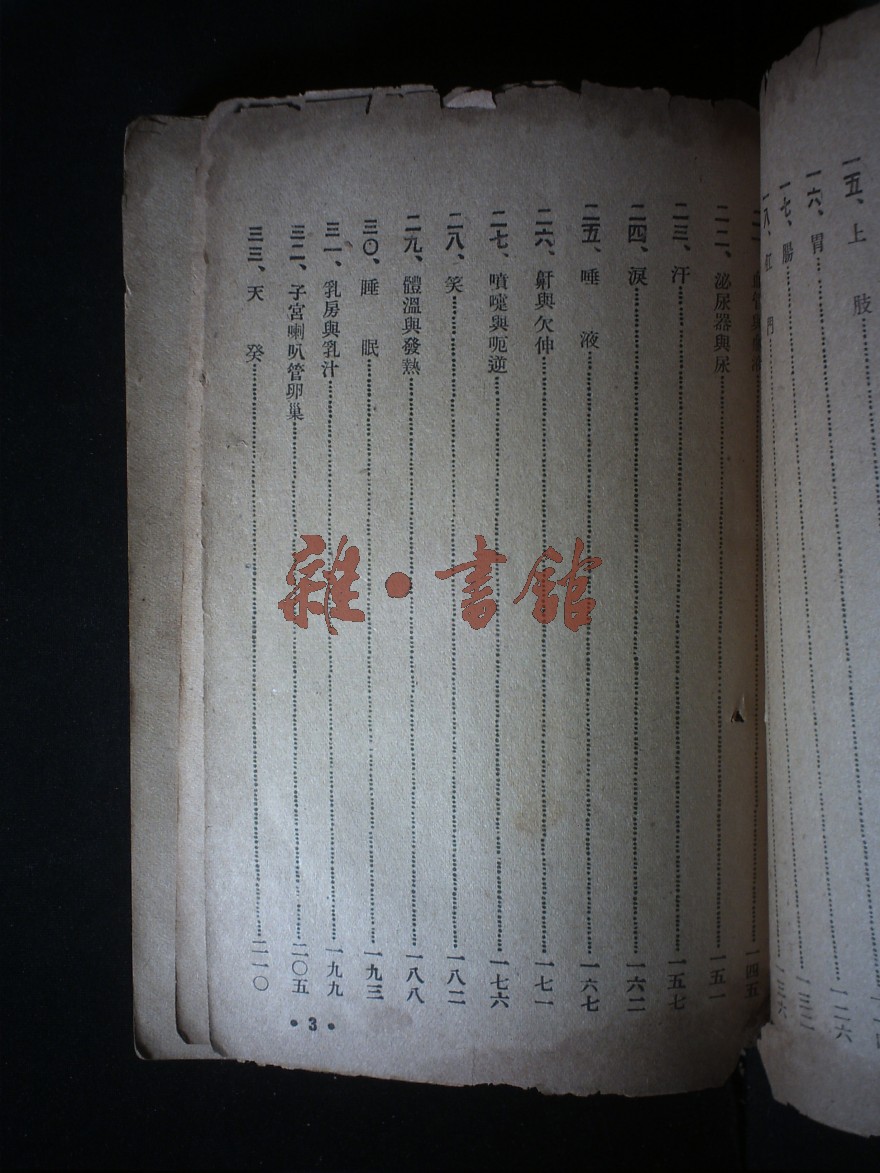 一五、上 肢
一六、胃……一二六
一七、腸……一三二
一八、肛 門……一三六
一四五
二二、泌尿器與尿……一五一
二三、汗……一五七
二四、淚……一六二
二五、唾 液……一六七
二六、鼾與欠伸……一七一
二七、噴嚏與呃逆……一七六
二八、笑……一八二
二九、體溫與發熱……一八八
三〇、睡 眠……一九三
三一、乳房與乳汁……一九九
三二、子宮喇叭管卵巢……二〇五
三三、天 癸……二一〇
•3•
雜•書館